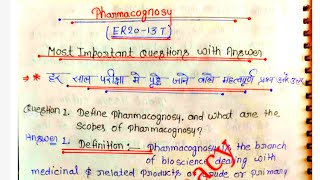 Pharmacognosy
(ER20-13T)
Most Important Questions with Answer
* हर साल परीक्षा मे पूछे जाने वाले महत्वपूर्ण प्रश्न उनके उत्तर
Question 1. Define Pharmacognosy, and what are the
scopes of pharmacognosy?
Answer 1. Definition :- Pharmacognosy is the branch
of bioscience dealing with
medicinal & related products of crude or primary